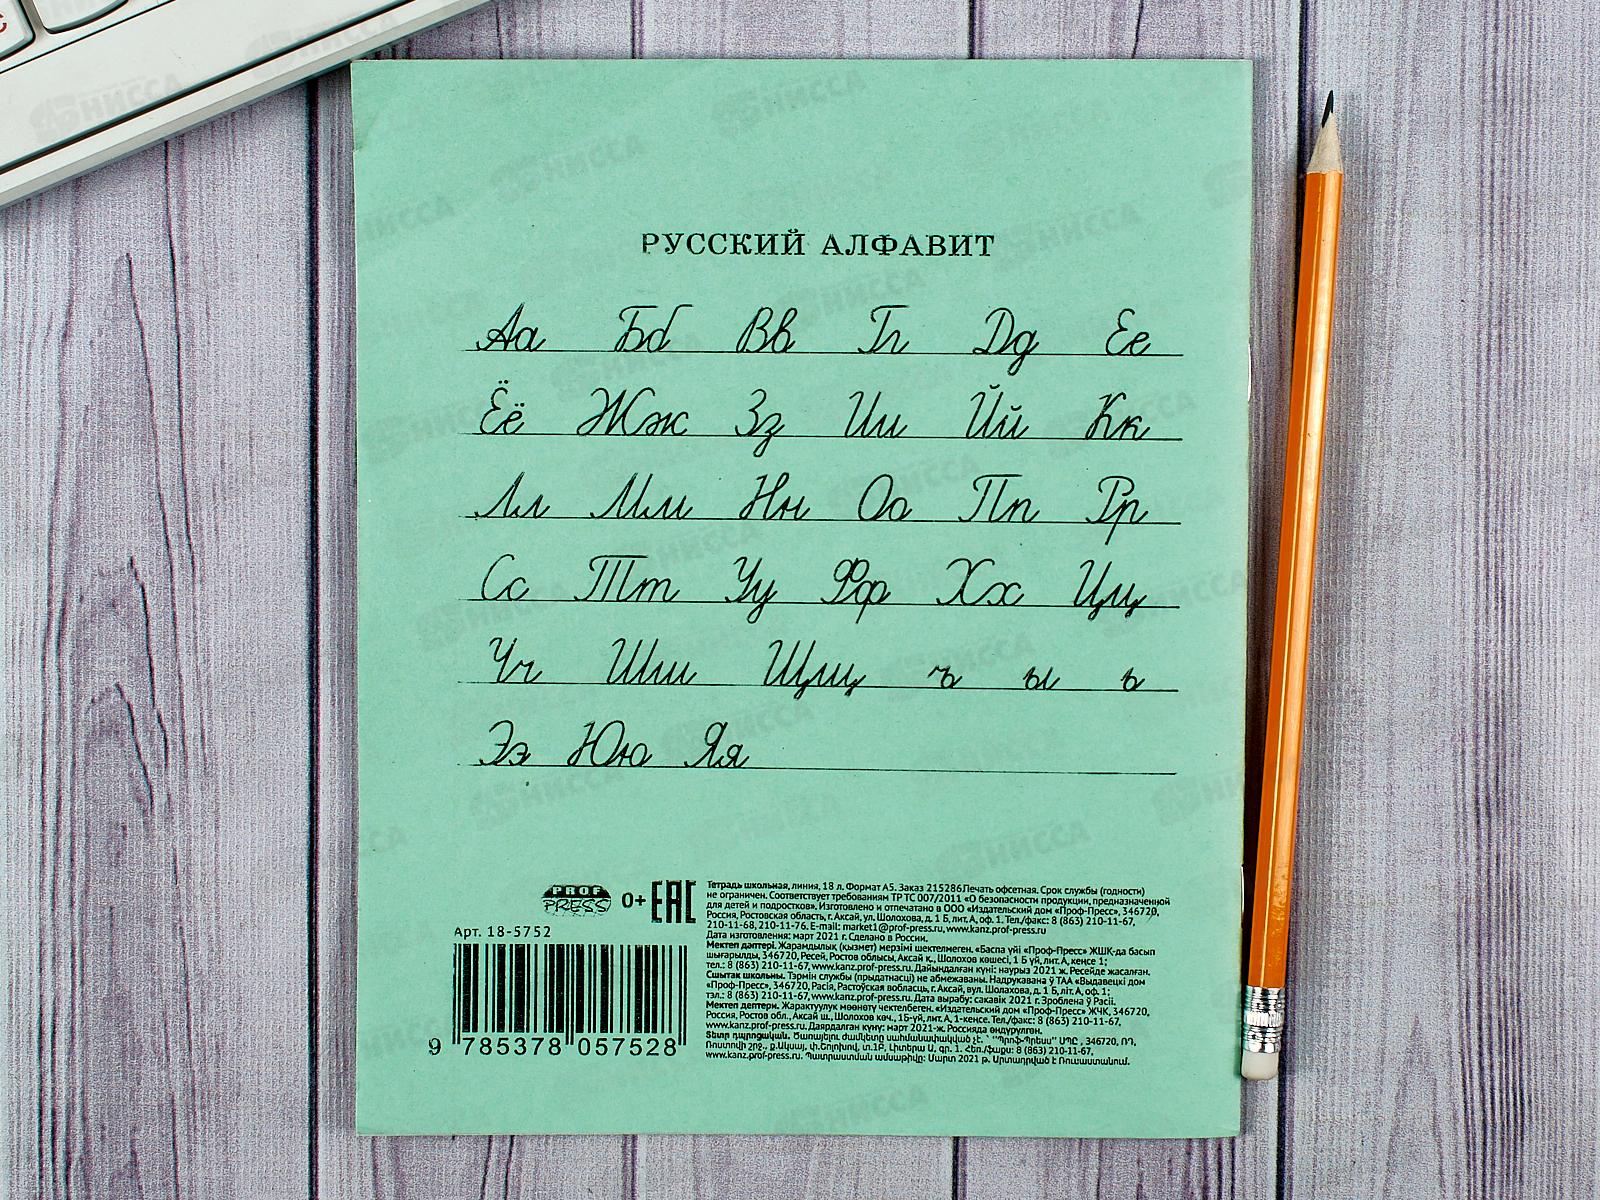 РУССКИЙ АЛФАВИТ
Аа Бб Вв Гг Дд Ее
Ёё Жж Зз Ии Йй Кк
Лл Мм Нн Оо Пп Рр
Сс Тт Уу Фф Хх Цц
Чч Шш Щщ ъ ы ь
Ээ Юю Яя
PROF
PRESS
0+ EAC
Арт. 18-5752
9 785378 057528
Тетрадь школьная, линия, 18 л. Формат А5. Заказ 215286Печать офсетная. Срок службы (годности)
не ограничен. Соответствует требованиям ТР ТС 007/2011 «О безопасности продукции, предназначенной
для детей и подростков». Изготовлено и отпечатано в ООО «Издательский дом «Проф-Пресс», 346720,
Россия, Ростовская область, г. Аксай, ул. Шолохова, д. 1 Б, лит. А, оф. 1. Тел./факс: 8 (863) 210-11-67,
210-11-68, 210-11-76. E-mail: market1@prof-press.ru, www.kanz.prof-press.ru
Дата изготовления: март 2021 г. Сделано в России.
Мектеп дәптері. Жарамдылық (қызмет) мерзімі шектелмеген. «Баспа үйі «Проф-Пресс» ЖШҚ-да басып
шығарылды, 346720, Ресей, Ростов облысы, Аксай қ., Шолохов көшесі, 1 Б үй, лит. А, кеңсе 1;
тел.: 8 (863) 210-11-67, www.kanz.prof-press.ru. Дайындалған күні: наурыз 2021 ж. Ресейде жасалған.
Сшытак школьны. Тэрмін службы (прыдатнасці) не абмежаваны. Надрукавана ў ТАА «Выдавецкі дом
«Проф-Пресс», 346720, Расія, Растоўская вобласць, г. Аксай, вул. Шолахова, д. 1 Б, літ. А, оф. 1;
тэл.: 8 (863) 210-11-67, www.kanz.prof-press.ru. Дата вырабу: сакавік 2021 г. Зроблена ў Расіі.
Мектеп дептери. Жарактуулук мөөнөтү чектелбеген. «Издательский дом «Проф-Пресс» ЖЧК, 346720,
Россия, Ростов обл., Аксай ш., Шолохов көч., 1Б-үй, лит. А, 1-кеңсе. Тел./факс: 8 (863) 210-11-67,
www.kanz.prof-press.ru. Даярдалган күнү: март 2021-ж. Россияда өндүрүлгөн.
Տետր դպրոցական. Ծառայելու ժամկետը սահմանափակված չէ. 346720, ՌԴ,
8 (863) 210-11-67,
www.kanz.prof-press.ru. Պատրաստման ամսաթիվը: Մարտ 2021 թ. Արտադրված է Ռուսաստանում.
НИССА